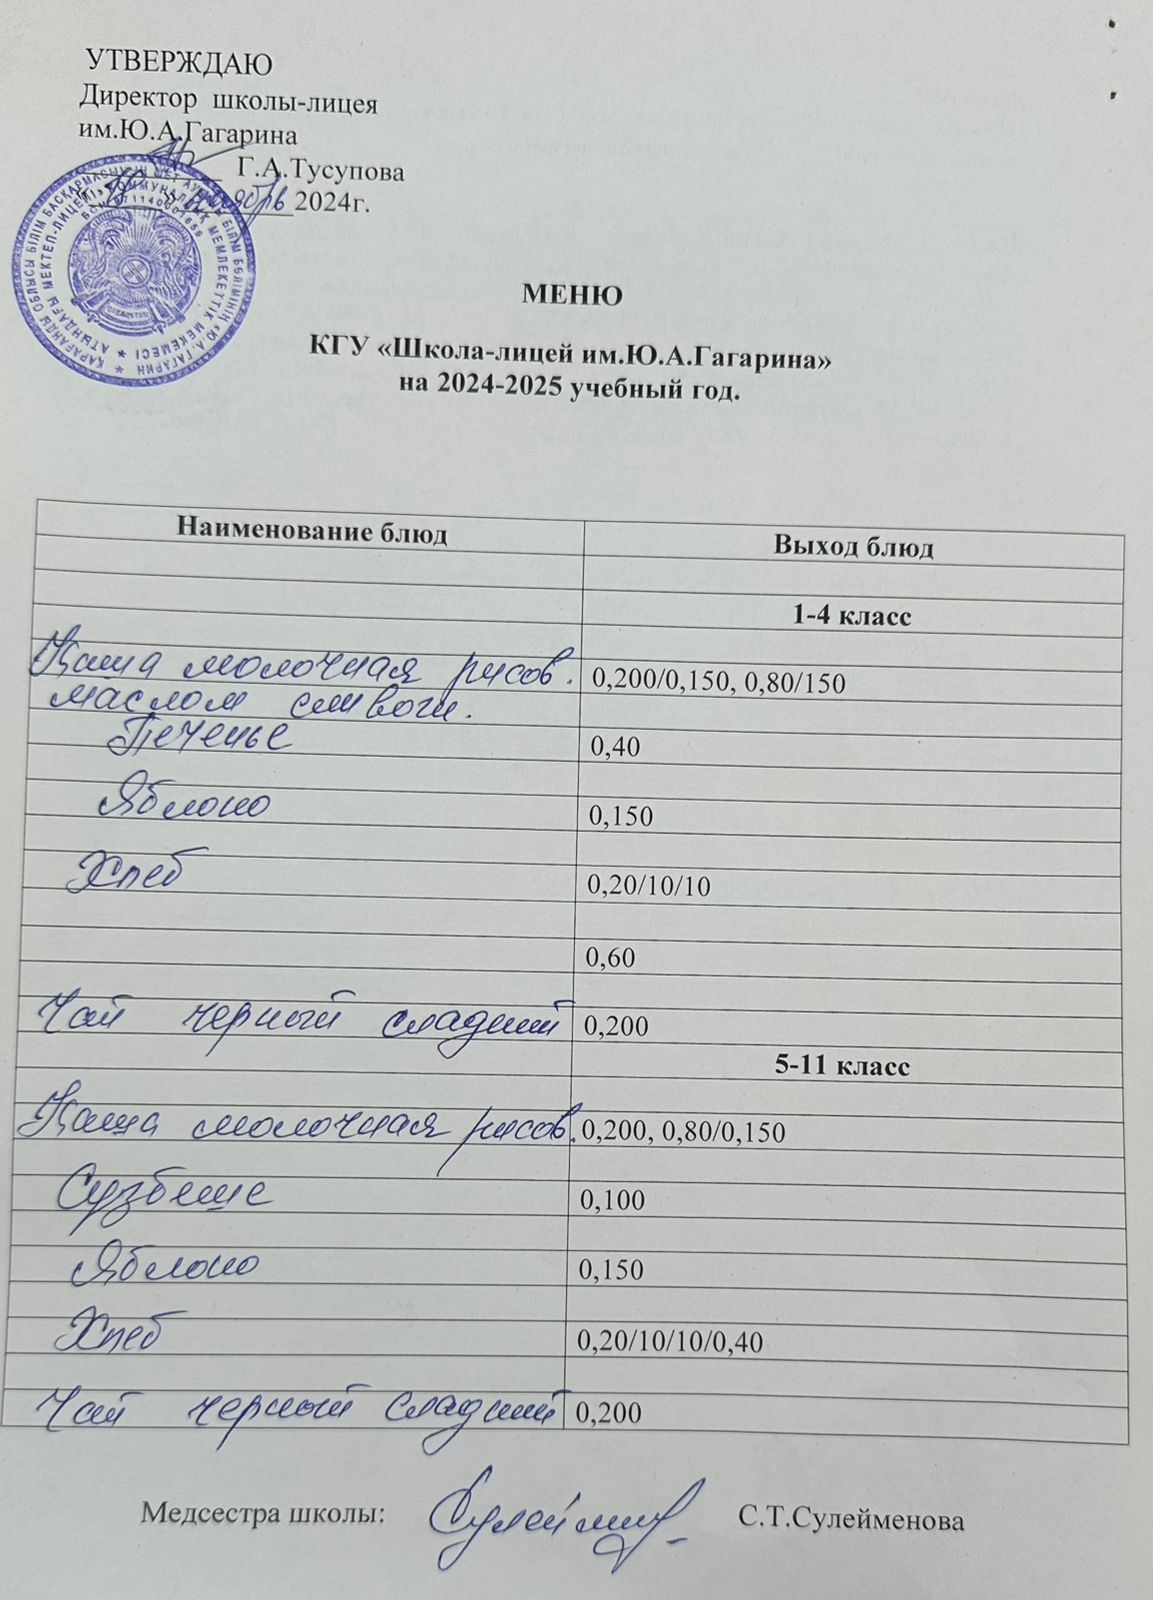 УТВЕРЖДАЮ
Директор школы-лицея
им.Ю.А.Гагарина
Г.А.Тусупова
ноябрь 2024г.
МЕНЮ
КГУ «Школа-лицей им.Ю.А.Гагарина»
на 2024-2025 учебный год.
Наименование блюд Выход блюд
1-4 класс
Каша молочная рисов. 0,200/0,150, 0,80/150
маслом сливочн.
Печенье 0,40
Яблоко 0,150
Хлеб 0,20/10/10
0,60
Чай черный сладкий 0,200
5-11 класс
Каша молочная рисов. 0,200, 0,80/0,150
Сузбеше 0,100
Яблоко 0,150
Хлеб 0,20/10/10/0,40
Чай черный сладкий 0,200
Медсестра школы: С.Т.Сулейменова